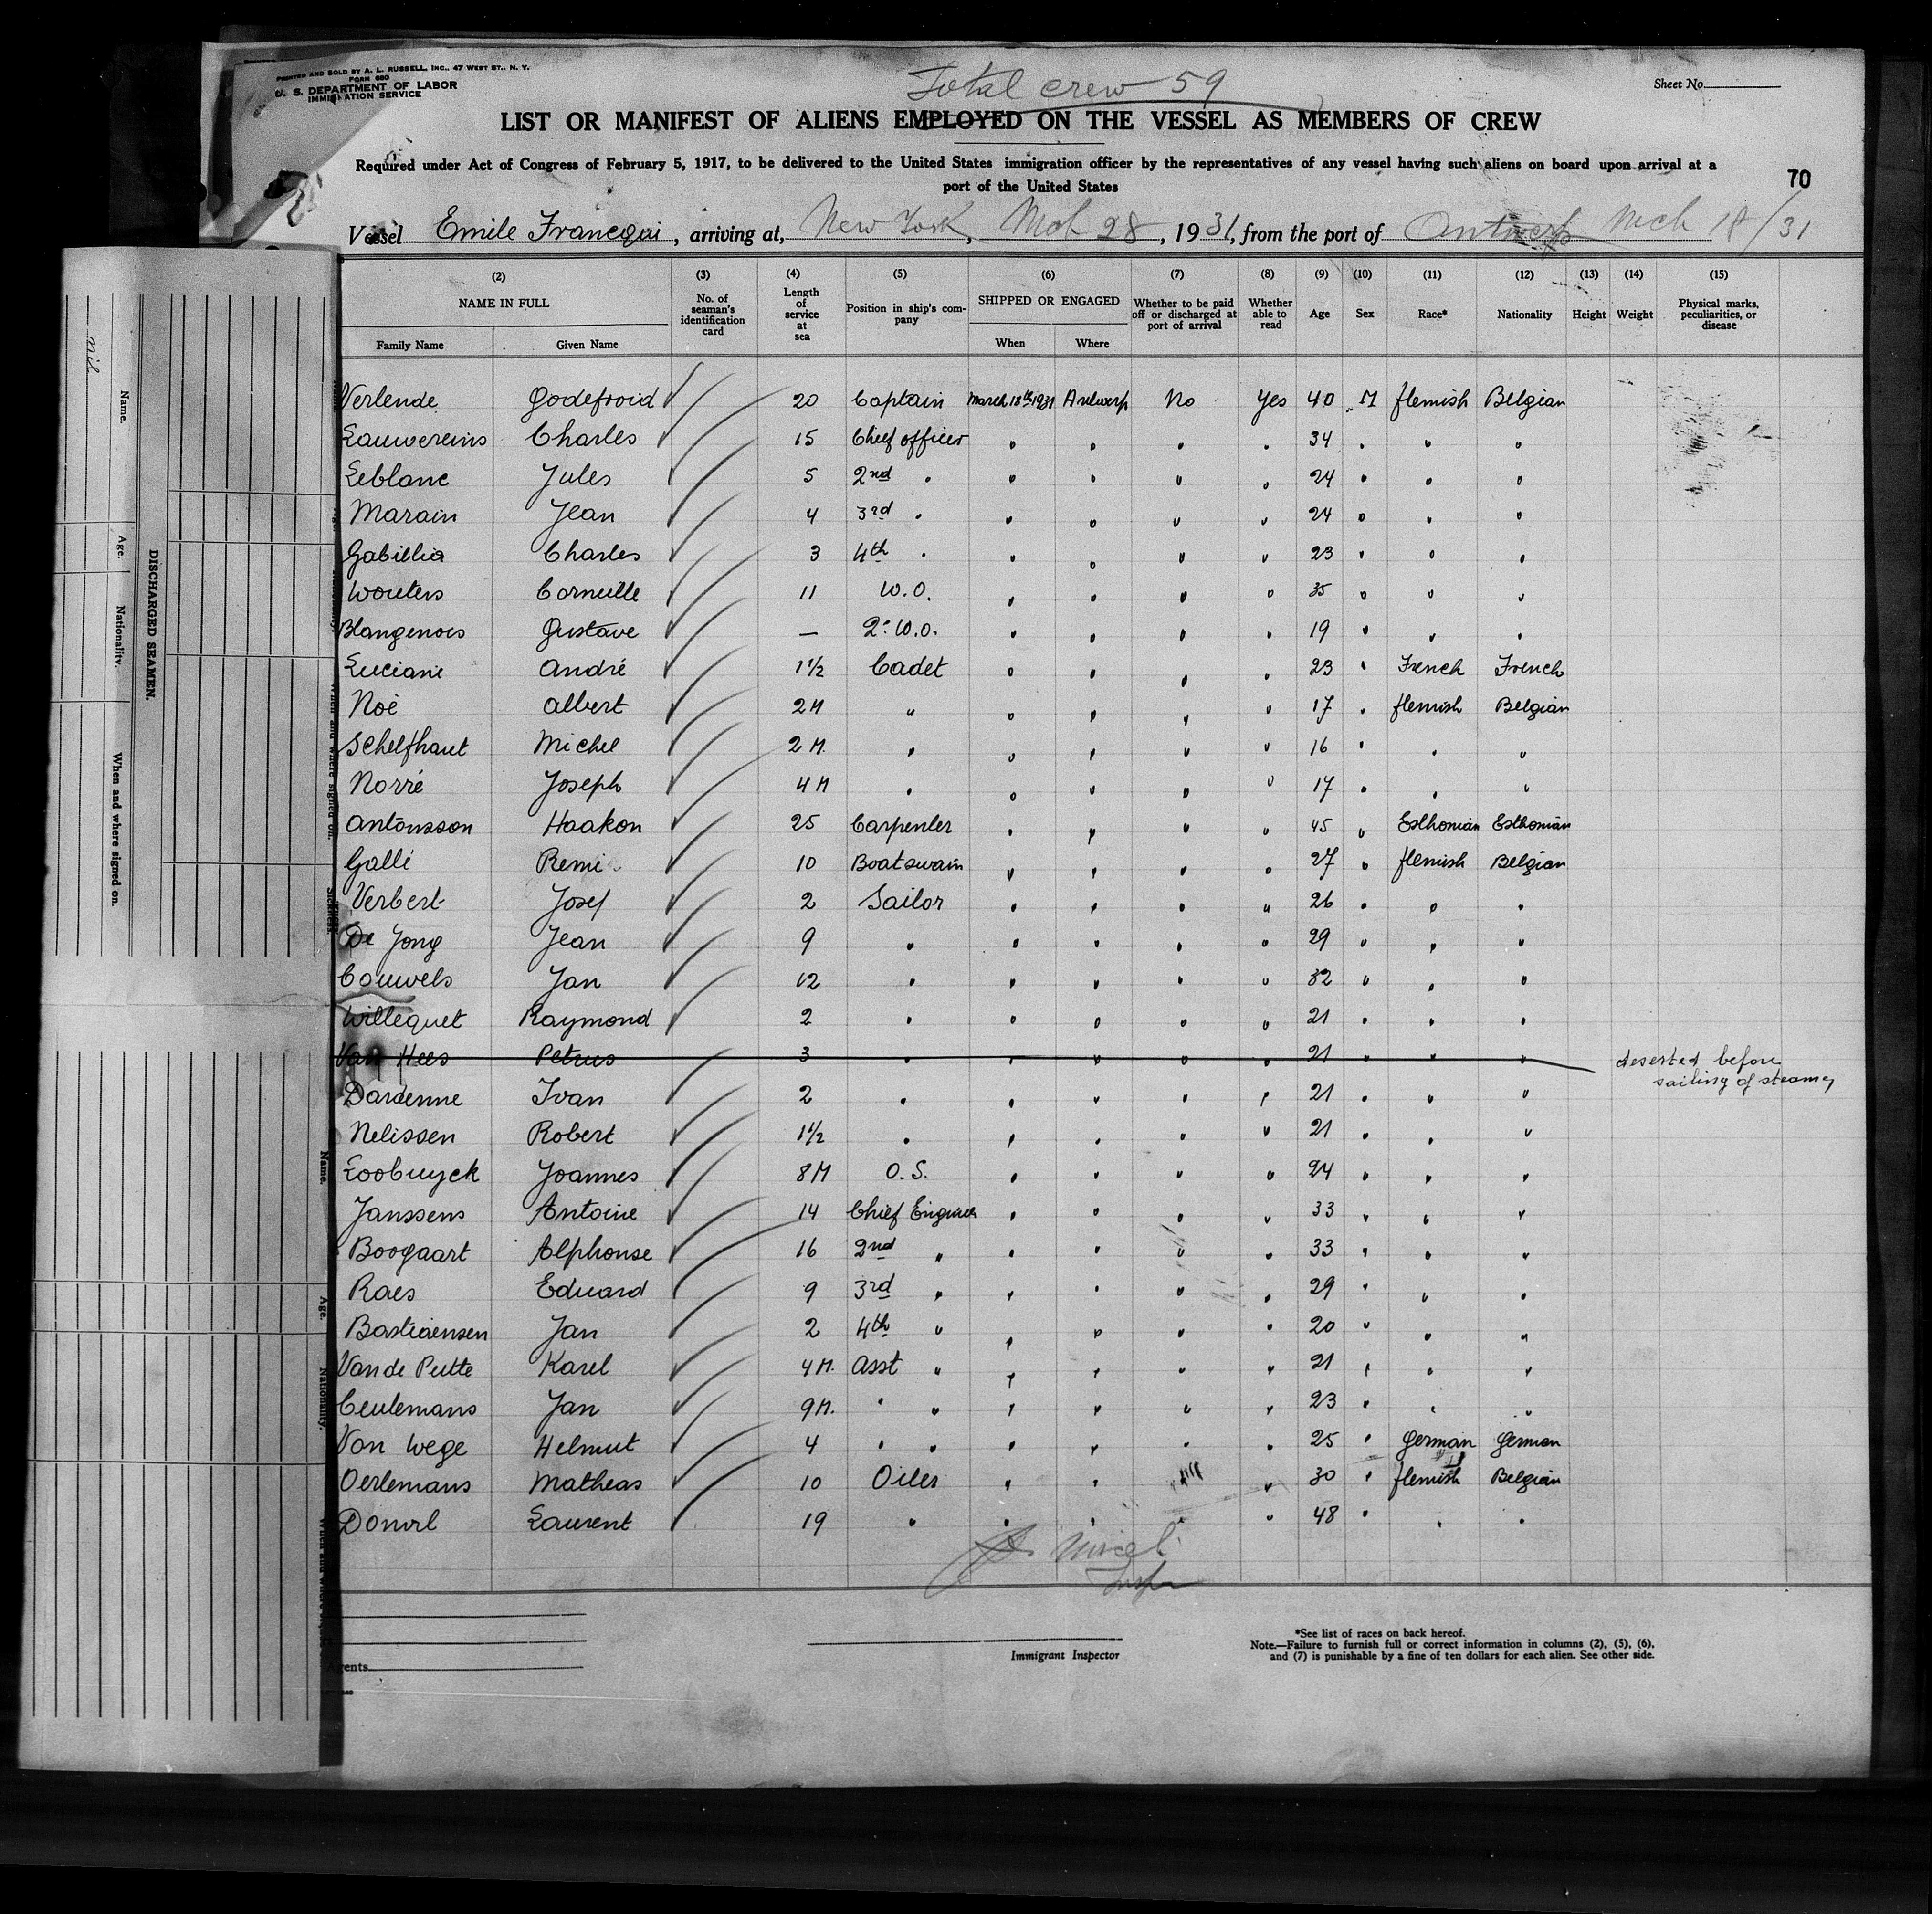 PRINTED AND SOLD BY A. L. RUSSELL, INC., 47 WEST ST., N. Y.
FORM 680
U. S. DEPARTMENT OF LABOR
IMMIGRATION SERVICE
Total crew 59
Sheet No.
LIST OR MANIFEST OF ALIENS EMPLOYED ON THE VESSEL AS MEMBERS OF CREW
Required under Act of Congress of February 5, 1917, to be delivered to the United States immigration officer by the representatives of any vessel having such aliens on board upon arrival at a
port of the United States
70
Vessel Emile Francqui, arriving at, New York, Mch 28, 1931, from the port of Antwerp Mch 18/31
(2) (3) (4) (5) (6) (7) (8) (9) (10) (11) (12) (13) (14) (15)
NAME IN FULL No. of seaman's identification card Length of service at sea Position in ship's company SHIPPED OR ENGAGED Whether to be paid off or discharged at port of arrival Whether able to read Age Sex Race* Nationality Height Weight Physical marks, peculiarities, or disease
Family Name Given Name When Where
Verlende Godefroid 20 Captain March 18th 1931 Antwerp No Yes 40 M flemish Belgian
Lauwereins Charles 15 Chief officer " " " " 34 " " "
Leblanc Jules 5 2nd " " " " " 24 " " "
Marain Jean 4 3rd " " " " " 24 " " "
Gabillia Charles 3 4th " " " " " 23 " " "
Wouters Corneille 11 W.O. " " " " 35 " " "
Blangenois Gustave — 2e W.O. " " " " 19 " " "
Luciani André 1 1/2 Cadet " " " " 23 " French French
Noë Albert 2M " " " " " 17 " flemish Belgian
Schelfhaut Michel 2M. " " " " " 16 " " "
Norré Joseph 4M " " " " " 17 " " "
Antonsson Haakon 25 Carpenter " " " " 45 " Esthonian Esthonian
Galli Remi 10 Boatswain " " " " 27 " flemish Belgian
Verbert Josef 2 Sailor " " " " 26 " " "
De Jong Jean 9 " " " " " 29 " " "
Couwels Jan 12 " " " " " 32 " " "
Willequet Raymond 2 " " " " " 21 " " "
Van Hees Petrus 3 " " " " " 21 " " " deserted before
sailing of steamer
Dardenne Ivan 2 " " " " " 21 " " "
Nelissen Robert 1 1/2 " " " " " 21 " " "
Loobuyck Joannes 8M O.S. " " " " 24 " " "
Janssens Antoine 14 Chief Engineer " " " " 33 " " "
Boogaart Alphonse 16 2nd " " " " " 33 " " "
Raes Eduard 9 3rd " " " " " 29 " " "
Bastiaensen Jan 2 4th " " " " " 20 " " "
Van de Putte Karel 4M. Asst " " " " " 21 " " "
Ceulemans Jan 9M. " " " " " " 23 " " "
Von Wege Helmut 4 " " " " " " 25 " German German
Oerlemans Matheas 10 Oiler " " " 30 " flemish Belgian
Laurent 19 " " " " " 48 " " "
Inspr
Immigrant Inspector
*See list of races on back hereof.
Note.—Failure to furnish full or correct information in columns (2), (5), (6),
and (7) is punishable by a fine of ten dollars for each alien. See other side.
Agents
nil
Name. Age. Nationality. When and where signed on.
DISCHARGED SEAMEN.
Name. Age. Nationality.